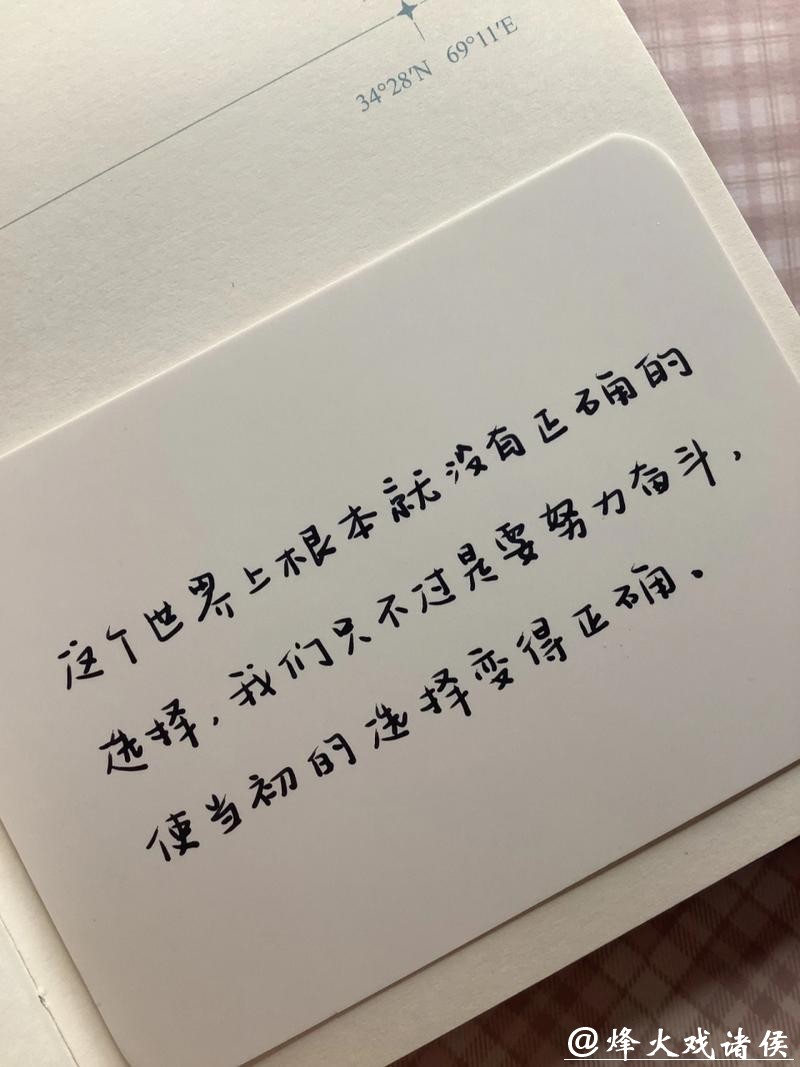 34°28′N 69°11′E
这个世界上根本就没有正确的
选择，我们只不过是要努力奋斗，
使当初的选择变得正确。
@烽火戏诸侯